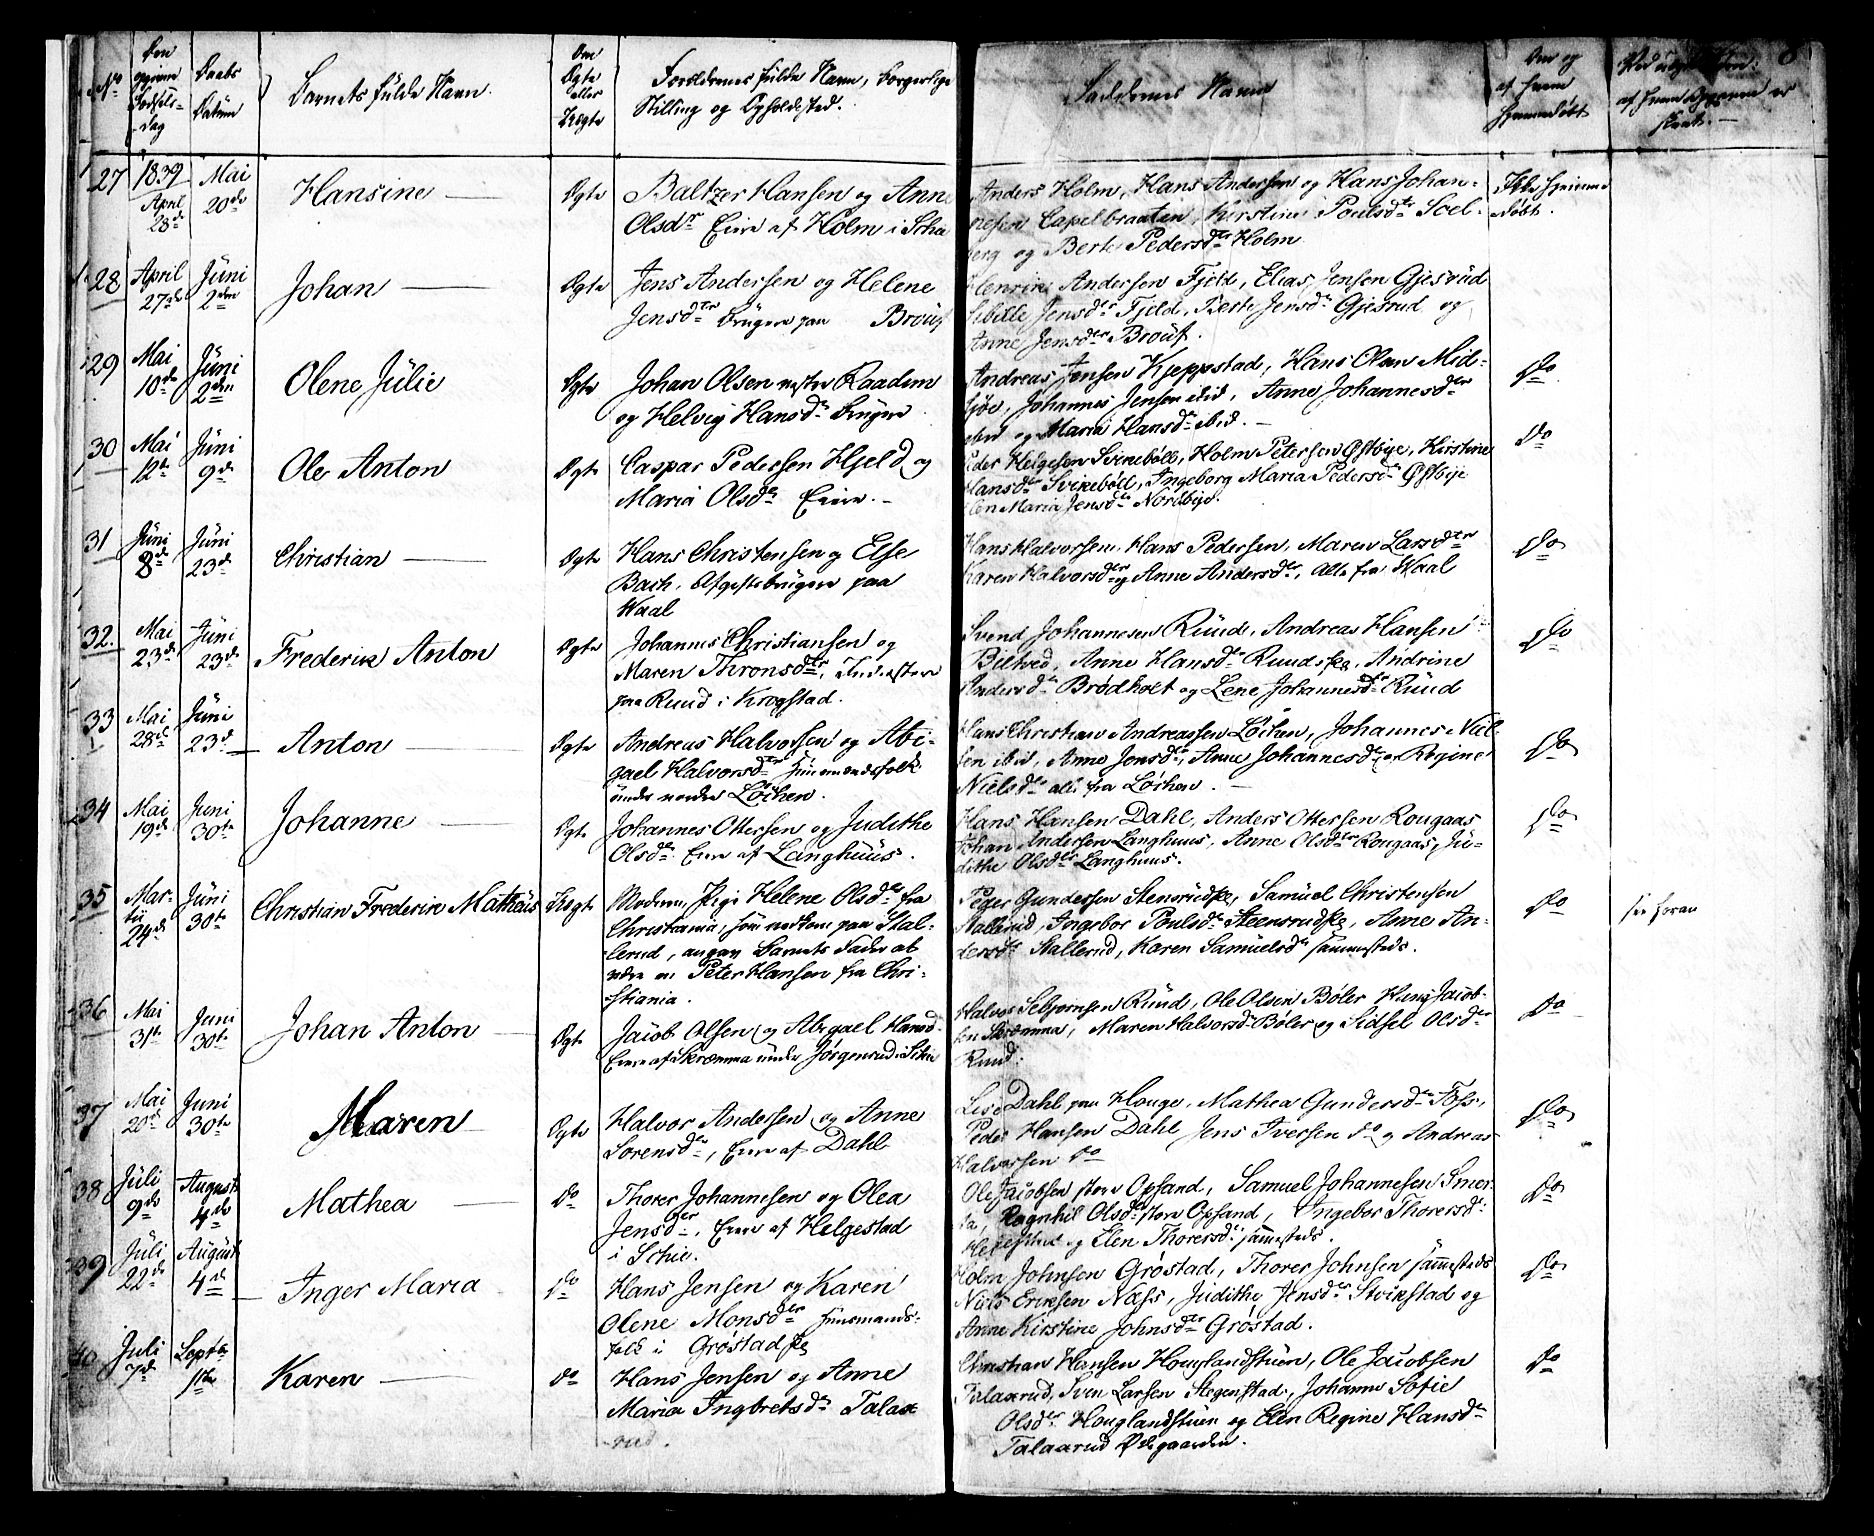 No
Den opgivne Fødsels-dag
Daabs Datum
Barnets fulde Navn.
Om Ægte eller Uægte
Forældrenes fulde Navn, borgerlige
Stilling og Opholdssted.
Faddernes Navne
Om og af hvem hjemmedøbt
27 1839 April 28de
Mai 20de
Hansine
Ægte
Baltzer Hansen og Anne
Olsdr Eiere af Holm i
Anders Holm, Hans Andersen og Hans Johan-
nesen Capelbraaten, Kirstine Poulsdtr Soel-
berg og Berte Pedersdtr Holm
Ikke hjemme
døbt.
28 April 27de
Juni 2den
Johan
Ægte
Jens Andersen og Helene
Jensdtr Brugere paa
Andersen Fjeld, Elias Jensen Gjesrud
Sibille Jensdtr Fjeld, Berte Jensdr Gjesrud og
Anne Jensdtr
29 Mai 10de
Juni 2den
Olene Julie
Ægte
Johan Olsen vestre Raadim
og Helvig Hansdr Brugere
Andreas Jensen Kjeppestad, Hans Olsen Mid-
Johannes Jensen ibid, Anne Johannesdtr
og Maria Hansdr ibid.
Do
30 Mai 12te
Juni 9de
Ole Anton
Ægte
Caspar Pedersen Kjeld og
Maria Olsdr Eiere.
Peder Helgesen Svikebøll, Holm Petersen Østbye, Kirstine
Hansdtr Svikebøll, Ingeborg Maria Pedersdr Østbye
Elen Maria Jensdtr Nordbye.
Do
31 Juni 8de
Juni 23de
Christian
Ægte
Hans Christensen og Else
Bach. Afgiftsbrugere paa
Waal
Hans Halvorsen, Hans Pedersen, Maren Larsdtr
Karen Halvorsdtr og Anne Andersdtr, Alle fra Waal
Do
32. Mai 23de
Juni 23de
Frederik Anton
Ægte
Johannes Christiansen og
Maren Thronsdtr, Inderster
paa Ruud i Krogstad.
Svend Johannesen Ruud, Andreas Hansen
Biltved, Anne Hansdr Ruudske, Andrine
Andersdr Brødholt og Lene Johannesdr Ruud
Do
33 Mai 28de
Juni 23de
Anton
Ægte
Andreas Halvorsen og Abi-
gael Halvorsdtr Huusmandsfolk
under nordre Løchen.
Hans Christian Andreassen Løchen, Johannes Niel-
sen ibid, Anne Jonsdr, Anne Johannesdr og Regine
Nielsdr alle fra Løchen.
Do
34 Mai 19de
Juni 30te
Johanne
Ægte
Johannes Ottersen og Judithe
Olsdr Eiere af Langhuus.
Hans Hansen Dahl, Anders Ottersen Rougaas
Johan Andersen Langhuus, Anne Olsdtr Rougaas, Ju-
dithe Olsdtr Langhuus.
Do
35 Mar-tii 24de
Juni 30te
Christian Frederik Matheus
Uægte
Moderen Pige Helene Olsdr fra
Christiania, som nu kom paa Stal-
lerud, angav Barnets Fader at
være en Peter Hansen fra Chri-
stiania.
Peder Gundersen Stensrudske, Samuel Christensen
Stallerud, Ingebor Poulsdr Steensrudske, Anne An-
dersdr Stallerud, Karen Samuelsdr sammesteds.
Do
see foran
36 Mai 31te
Juni 30te
Johan Anton
Ægte
Jacob Olsen og Abigael Hansd.
Eiere af Skræmma under Jørgenrud i Schie
Halvor Sebjørnsen Ruud, Ole Olsen Bøler, Jacob-
sen Skræmma, Maren Halvorsdr Bøler og Sidsel Olsdtr
Ruud.
Do
37 Mai 20de
Juni 30te
Maren
Ægte
Halvor Andersen og Anne
Sørensdr, Eiere af Dahl
Lise Dahl paa Houge, Mathea Gundersdr Foss,
Peder Hansen Dahl, Jens Iversen do og Andreas
Halvorsen do
Do
38 Juli 9de
August 4de
Mathea
do
Thorer Johannesen og Olea
Jensdtr, Eiere af Helgestad
i Schie.
Ole Jacobsen store Opsand, Samuel Johannesen Smer-
ta, Ragnhil Olsdr store Opsand, Ingebor Thorersdr
Helgestad og Elen Thorersdr sammesteds.
Do
39 Juli 22de
August 4de
Inger Maria
do
Hans Jensen og Karen
Olene Monsdtr Huusmands-
folk i Grøstadske
Holm Johnsen Grøstad, Thorer Johnsen sammesteds
Niels Eriksen Næss, Judithe Jensdr Svikstad og
Anne Kirstine Johnsdtr Grøstad.
Do
40 Juli 7de
Septb. 1ste
Karen
do
Hans Jensen og Anne
Maria Ingbretsdr Talaa-
rud.
Christian Hansen Houglandstuen, Ole Jacobsen
Talaarud, Sven Larsen Stegenstad, Johanne Sofie
Olsdtr Houglandstuen og Elen Regine Hansdr
Talaarud Ødegaarden.
Do